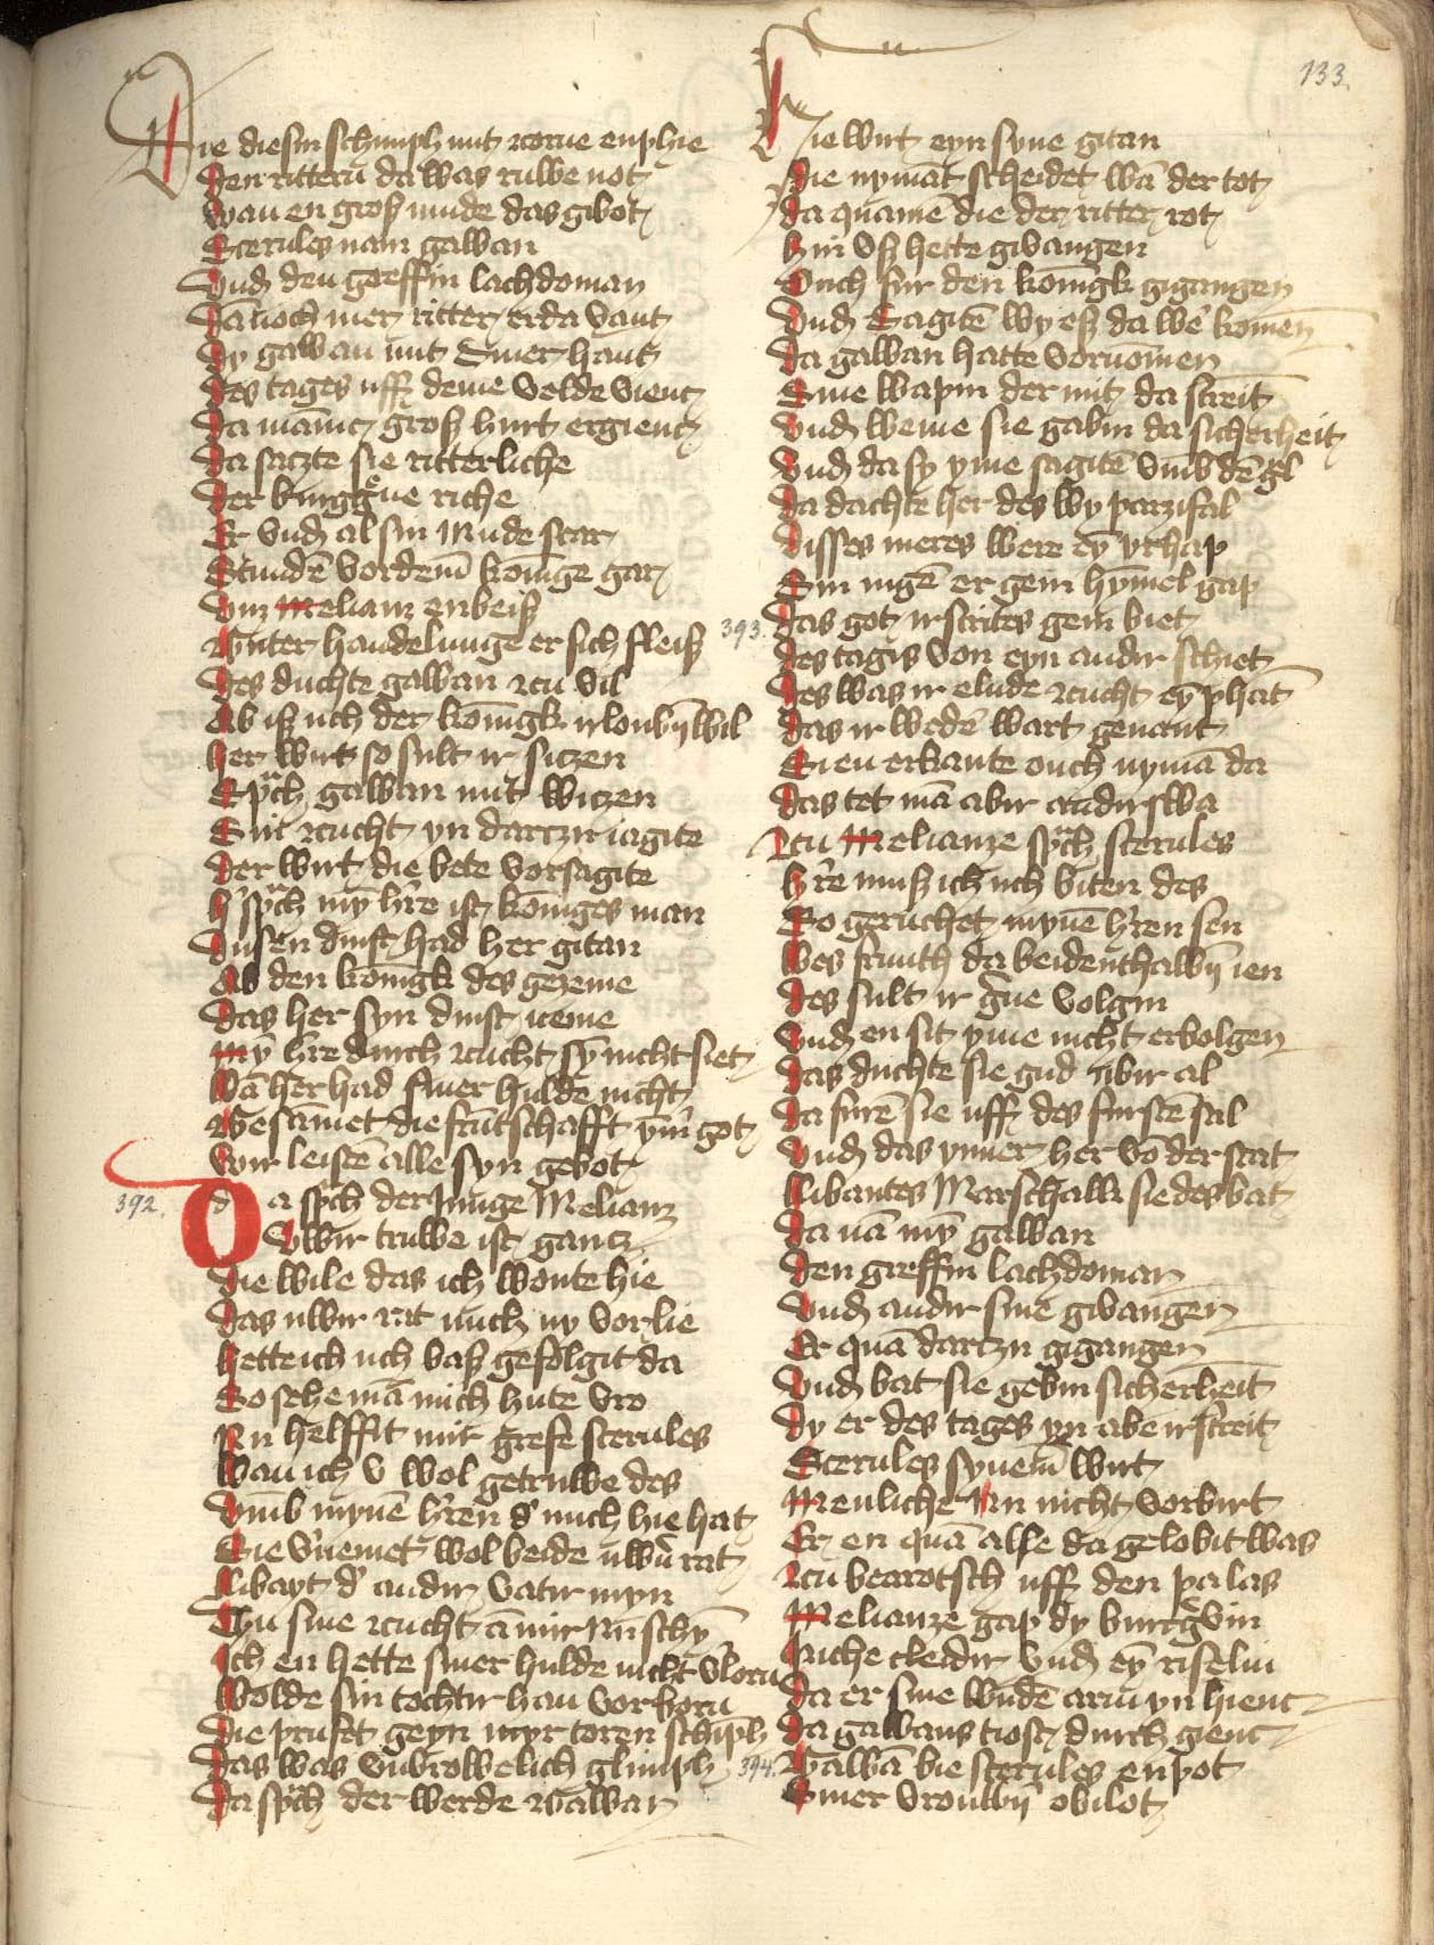 133
Die diesin schimph mit zcorne enphie
Den rittern da was ruwe not
Wan en groß mude das gibot
Scerules nam gawan
Vnd den greffin lachdoman
Da noch mer ritter er da vant
Dy gawan mit siner hant
Des tages uff deme velde vienc
Da mānic groß hurt ergienc
Da saczte sie ritterliche
Der burggͤue riche
Er vnd al sin mude scar
Stundē vor dem̄ konīge gar
Vnz Melianz enbeiß
Guter handelunge er sich fleiß
Des duchte gawan zcu vil
Ab iß uch der konīgk irloubin wil
her wirt so sult ir siczen
Sprch gawan mit wiczen
Sin zcucht yn dartzu iagite
Der wirt die bete vorsagite
h' sprch mȳ h're ist konīges man
Dusen dinst had her gitan
Ab den konīgk des geczeme
Das her syn dinst neme
Mȳ h're durch zcucht sȳ nicht siet
Wā her had siner hulde nicht
Gesāmet die frūtschafft ym̄r got
Wir leistē alle syn gebot
392.
Da sprch der Junge Melianz
Vwir truwe ist gancz
Die wile das ich wonte hie
Das uwir rat mich ny vorlie
hette ich uch baß gefolgit da
So sehe mā mich hute vro
Nu helffit mir grefe scerules
Wan ich v wol getruwe des
Vmb mynē h'ren d' mich hie hat
Sie v'nemet wol beide uw'n rat
Libayt d' andir vatir myn
Thu sine zcucht ā mir nu schȳ
Ich en hette siner hulde nicht v'lorn
Wolde sin tochtir han vorkorn
Die pruft geyn myr toren schīph
Das was vnvrowelich glimph
Da sprch der werde gawan
Hie wirt eyn syne gitan
Die nymāt scheidet wā der tot
Da quamē die der ritter rot
hin vß hette givangen
Ouch fur den konīgk gigangen
Vnd sagitē wy eß da we' komen
Da gawan hatte vornomen
Sine wapin der mit da streit
Vnd weme sie gabin da sicherheit
Vnd da sy yme sagitē vmb dē gͣl
Da dachte her des wy parzifal
Disses meres were eȳ vrhap
Sin nigē er gein hȳmel gap
393.
Das got ir strites gein biet
Des tagis von eyn andir schiet
Des was ir elude zcucht eȳ phāt
Das ir wedē wart genant
Sie en erkante ouch nymā da
Das tet mā abir andirswa
Zcu Melianze sprch scerules
h're muß ich uch biten des
So geruchet mynē h'ren sen
Wes frunth da beidenthalbin ien
Des sult ir g'ne volgin
Vnd en sit yme nicht erbolgen
Das duchte sie gud ubir al
Da furē sie uff des furstē sal
Vnd das ynner her vō der stat
Libantes Marschalk sie des bat
Da nā mȳ gawan
Den greffin lachdoman
Vnd andir sine givangen
Er quā dartzu gigangen
Vnd bat sie gebin sicherheit
Dy er des tages yn abe irstreit
Scerules synem̄ wirt
Menlicher nu nicht vorbirt
Er en quā alse da gelobit was
Zcu bearotsch uff den palas
Melianze gap dy burcgͤvin
Riche cleidir vnd eȳ riselin
Da er sine wūdē arm yn hienc
Da gawans tiost durch gienc
394.
Gawā bie scerules enpot
Siner vrouwin obilot